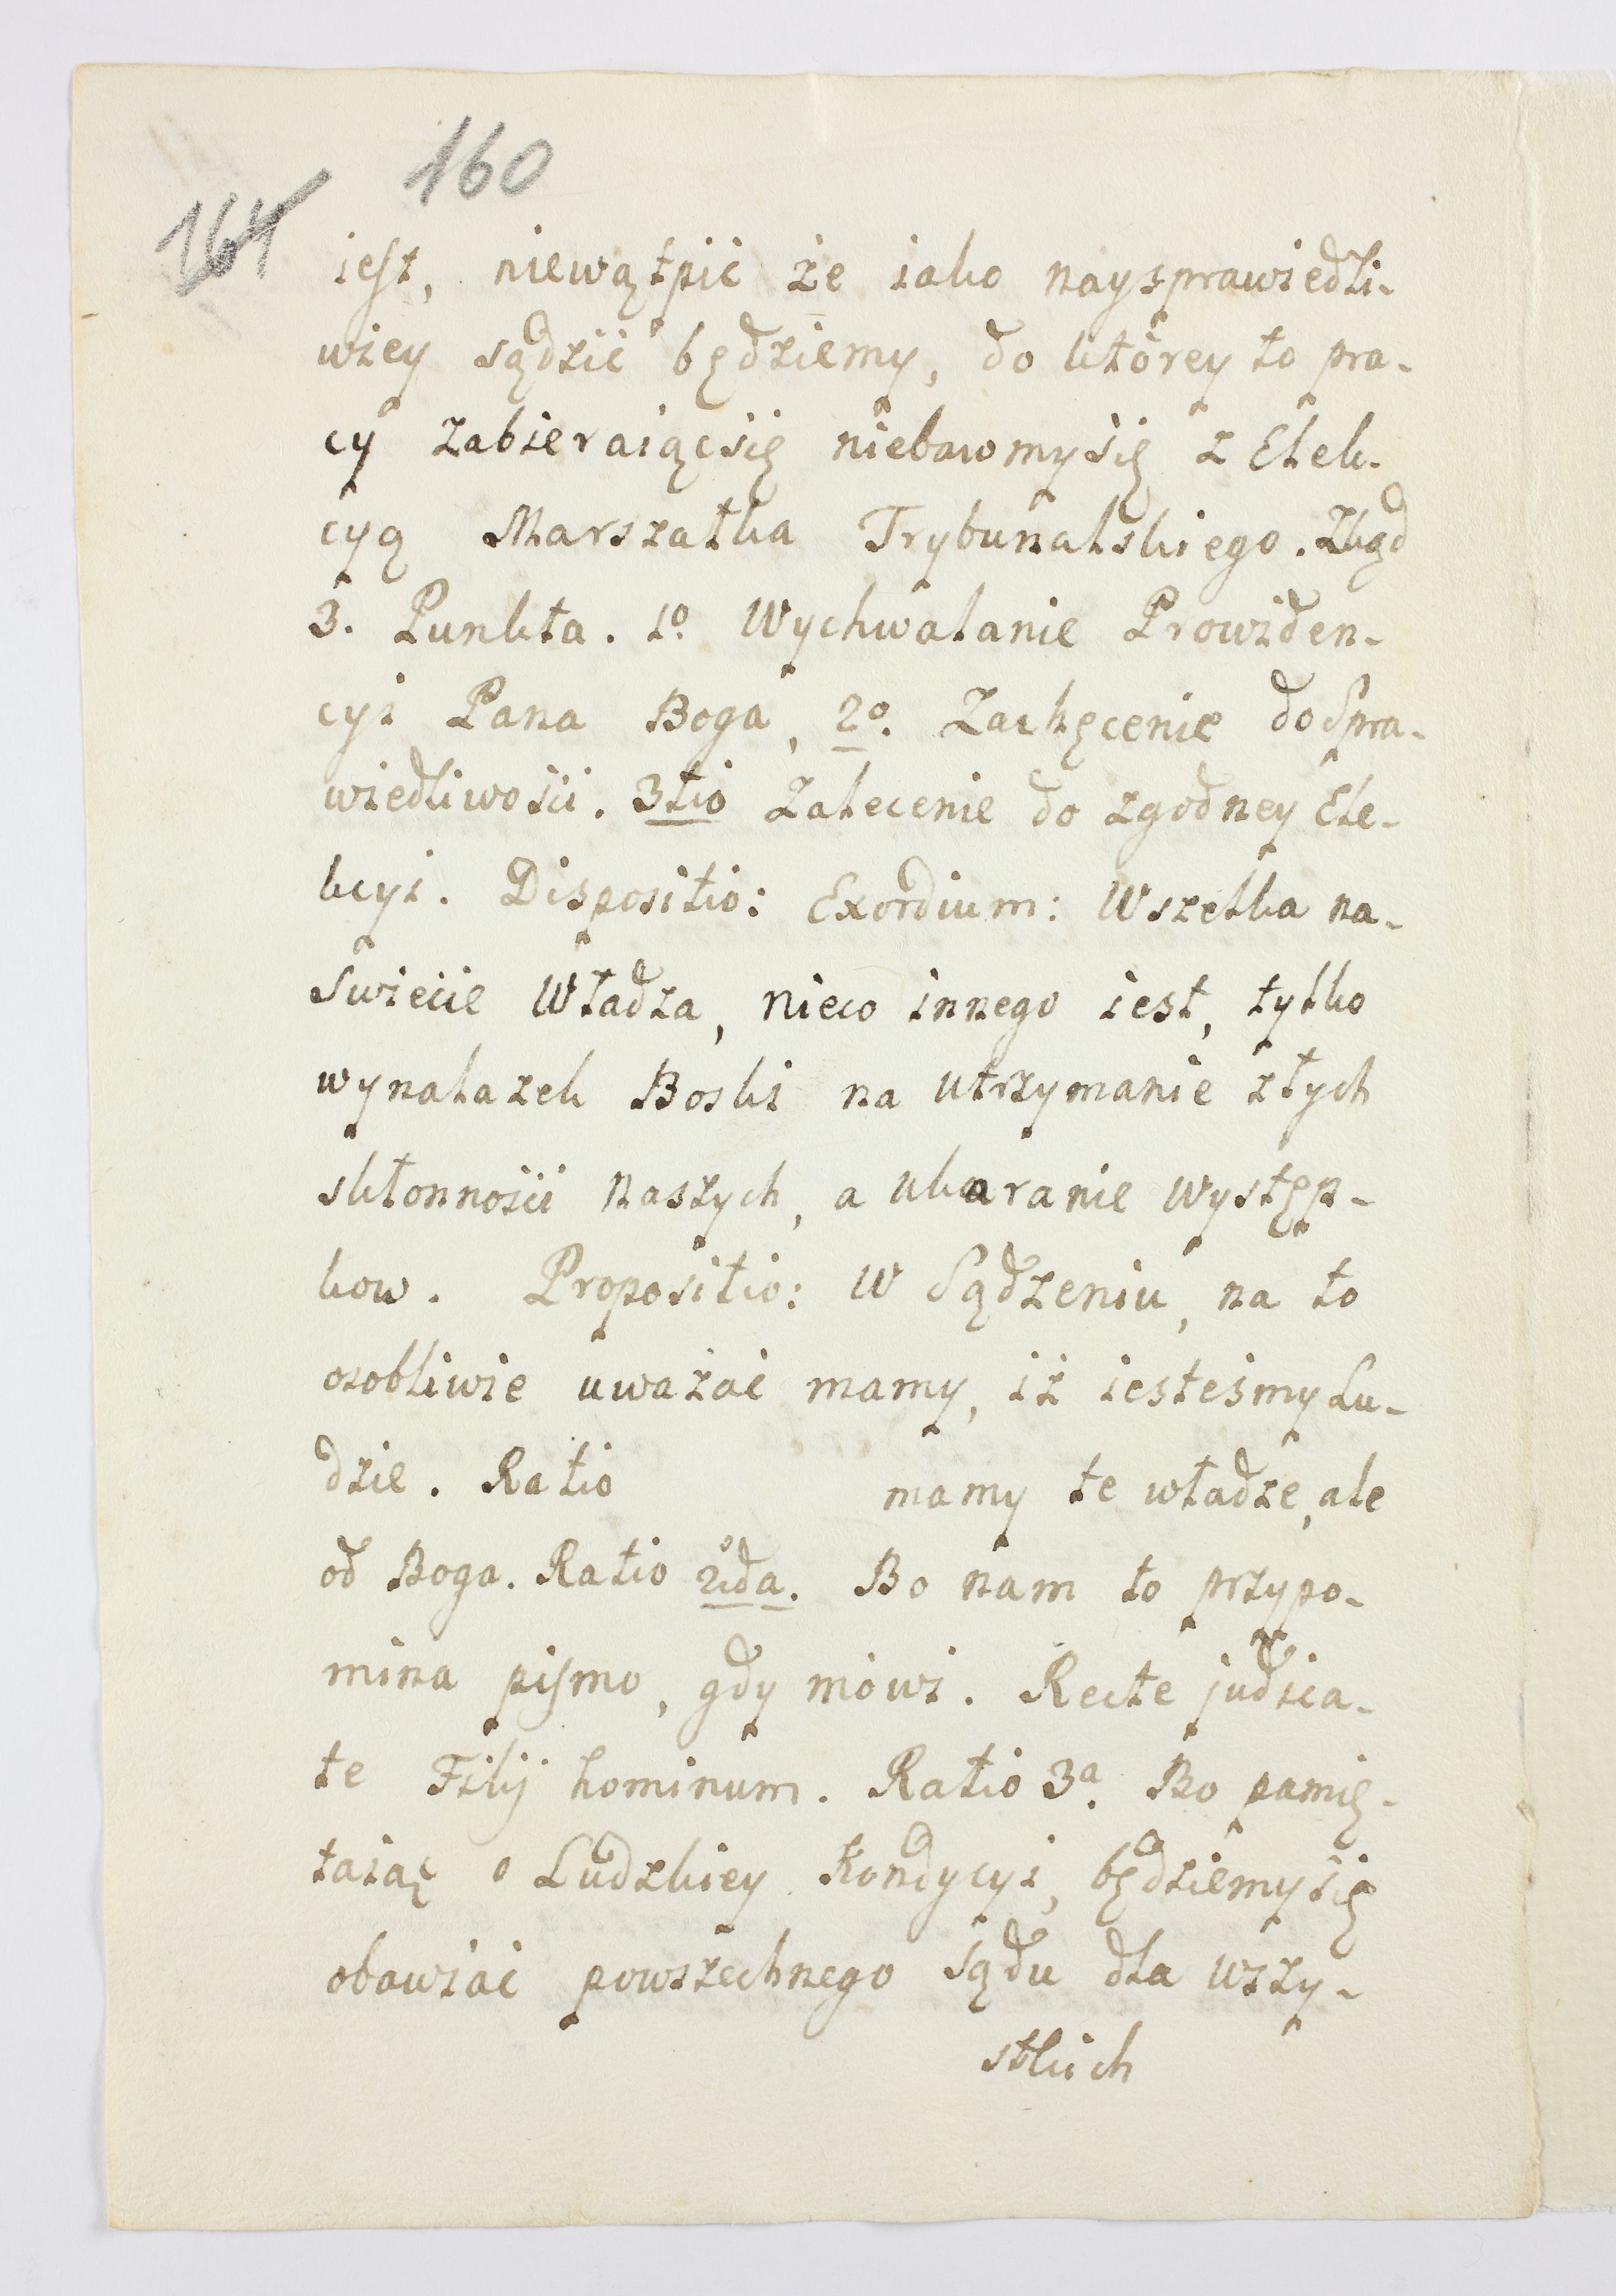 160
164
iest, niewątpić że iako naysprawiedli-
wiey sądzić będziemy, do którey to pra-
cy zabieraiącsię niebawmysię z Elek-
cyą Marszałka Trybunalskiego. Zkąd
3. Punkta. 1º. Wychwalanie Prowiden-
cyi Pana Boga, 2º. Zachęcenie do Spra-
wiedliwości. 3tio Zalecenie do zgodney Ele-
kcyi. Dispositio: Exordium: Wszelka na-
Swiecie Władza, nieco innego iest, tylko
wynalazek Boski na utrzymanie złych
skłonności naszych, a ukaranie występ-
kow. Propositio: W Sądzeniu, na to
osobliwie uważać mamy, iż iesteśmy Lu-
dzie. Ratio mamy te władze, ale
od Boga. Ratio 2da. Bo nam to przypo-
mina pismo, gdy mówi. Recte judica-
te Filij hominum. Ratio 3ª. Bo pamię-
taiąc o Ludzkiey Kondycyi, będziemysię
obawiać powszechnego Sądu dla wszy-
stkich